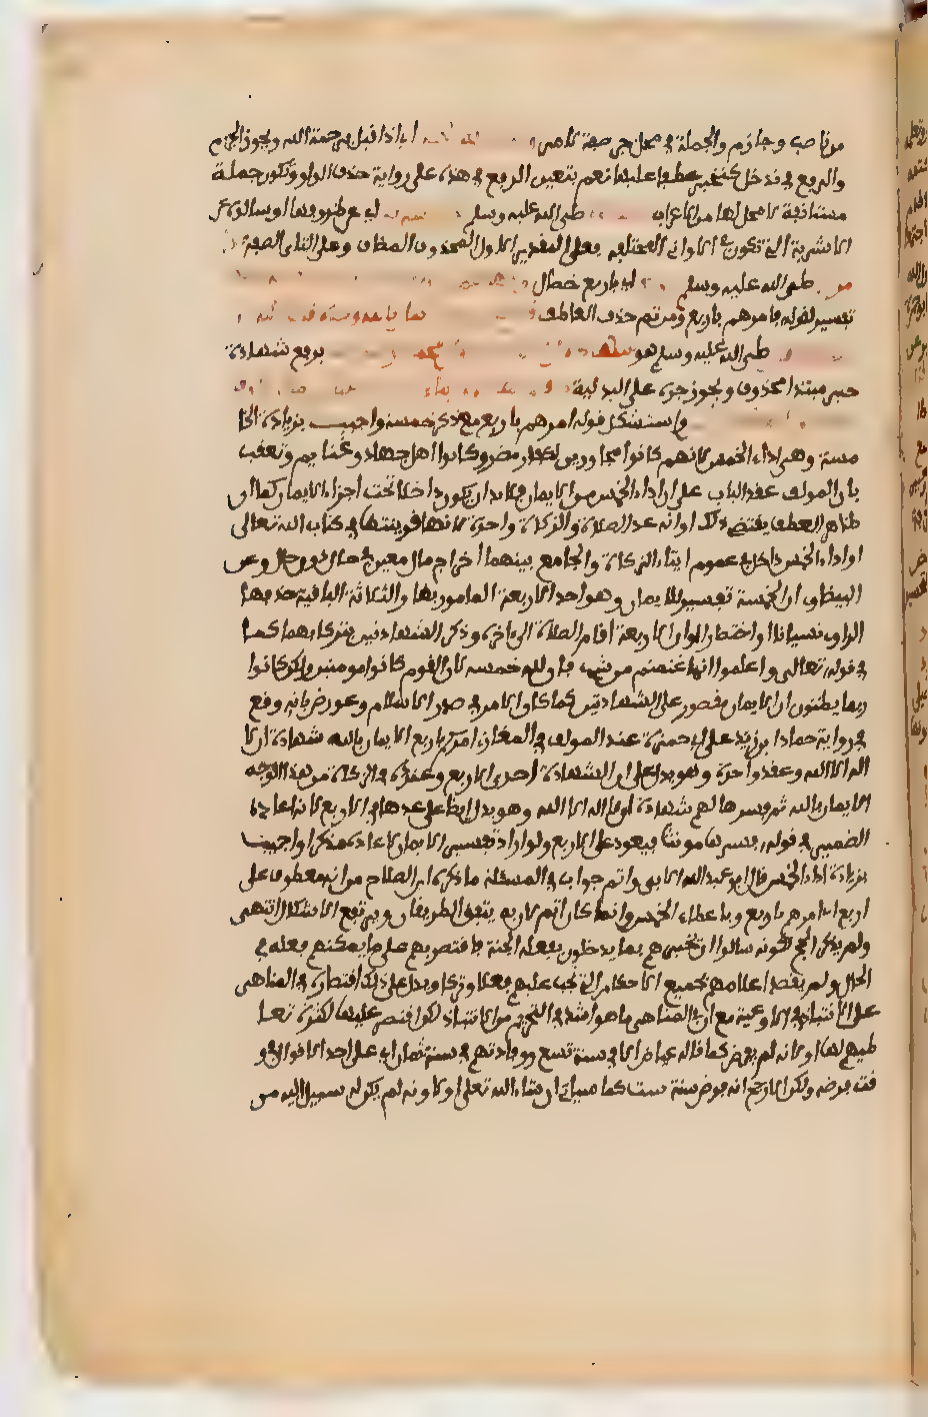 من ناصب وجازم والجملة في محل جر صفة لامر اي اذا قبل برحمة الله ويجوز الجزم
والرفع في ندخل كنخبر عطفا عليها نعم يتعين الرفع في هذه على رواية حذف الواو وتكون جملة
مستانفة لا محل لها من الاعراب صلى الله عليه وسلم اي عن ظروفها او سالوه عن
الاشربة التي تكون في الاواني المختلفة فعلى التقدير الاول المحذوف المضاف وعلى الثاني الصفة
صلى الله عليه وسلم اي باربع خصال
تفسير لقوله فامرهم باربع ومن ثم حذف العاطف
صلى الله عليه وسلم هو برفع شهادة
خبر مبتدا محذوف ويجوز جره على البدلية
واستشكل قوله امرهم باربع مع ذكر خمسة واجيب بزيادة الخا
مسة وهي اداء الخمس لانهم كانوا مجاورين لكفار مضر وكانوا اهل جهاد وغنايم وتعقب
بان المولف عقد الباب على ان اداء الخمس من الايمان فلا بد ان يكون داخلا تحت اجزاء الايمان كما ان
ظاهر العطف يقتضي ذلك او انه عد الصلاة والزكاة واحدة لانها قرينتها في كتاب الله تعالى
او اداء الخمس داخل في عموم ايتاء الزكاة والجامع بينهما اخراج مال معين في حال دون حال وعن
البيضاوي ان الخمسة تفسير للايمان وهو احد الاربعة المامور بها والثلاثة الباقية حذفها
الراوي نسيانا او اختصارا او ان الاربعة اقام الصلاة الى اخره وذكر الشهادتين تبركا بهما كما
في قوله تعالى واعلموا انما غنمتم من شيء فان لله خمسه لان القوم كانوا مومنين ولكن كانوا
ربما يظنون ان الايمان مقصور على الشهادتين كما كان الامر في صدر الاسلام وعورض بانه وقع
في رواية حماد بن زيد عن ابي جمرة عند المولف في المغازي امركم باربع الايمان بالله شهادة ان لا
اله الا الله وعقد واحدة وهو يدل على ان الشهادة احدى الاربع وعنده في الزكاة من هذا الوجه
الايمان بالله ثم فسرها لهم شهادة ان لا اله الا الله وهو يدل ايضا على عدها في الاربع لانه اعاد
الضمير في قوله فسرها مونثا فيعود على الاربع ولو اراد تفسير الايمان لاعاده مذكرا واجيب
بزيادة اداء الخمس قال ابو عبد الله الابي واتم جواب في المسئلة ما ذكره ابن الصلاح من انه معطوف على
اربع اي امرهم باربع وباعطاء الخمس وانما كان اتم لان به يتفق الطريقان ويرتفع الاشكال انتهى
ولم يذكر الحج لكونه سالوا ان يخبرهم بما يدخلون بفعله الجنة فاقتصر لهم على ما يمكنهم فعله في
الحال ولم يقصد اعلامهم بجميع الاحكام التي تجب عليهم فعلا وتركا ويدل على ذلك اقتصاره في المناهي
على الانتباذ في الاوعية مع ان في المناهي ما هو اشد في التحريم من الانتباذ لكن اقتصر عليها لكثرة تعا
طيهم لها او لانه لم يفرض كما قاله عياض الا في سنة تسع ووفادتهم في سنة ثمان اي على احد الاقوال في و
قت فرضه ولكن الارجح انه فرض سنة ست كما سياتي ان شاء الله تعالى او لكونه لم يكن له سبيل اليه من